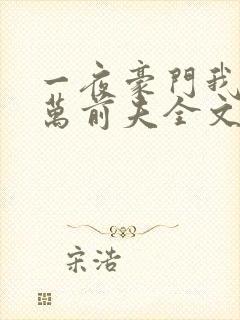 一夜豪門我
萬前夫全文
宋浩